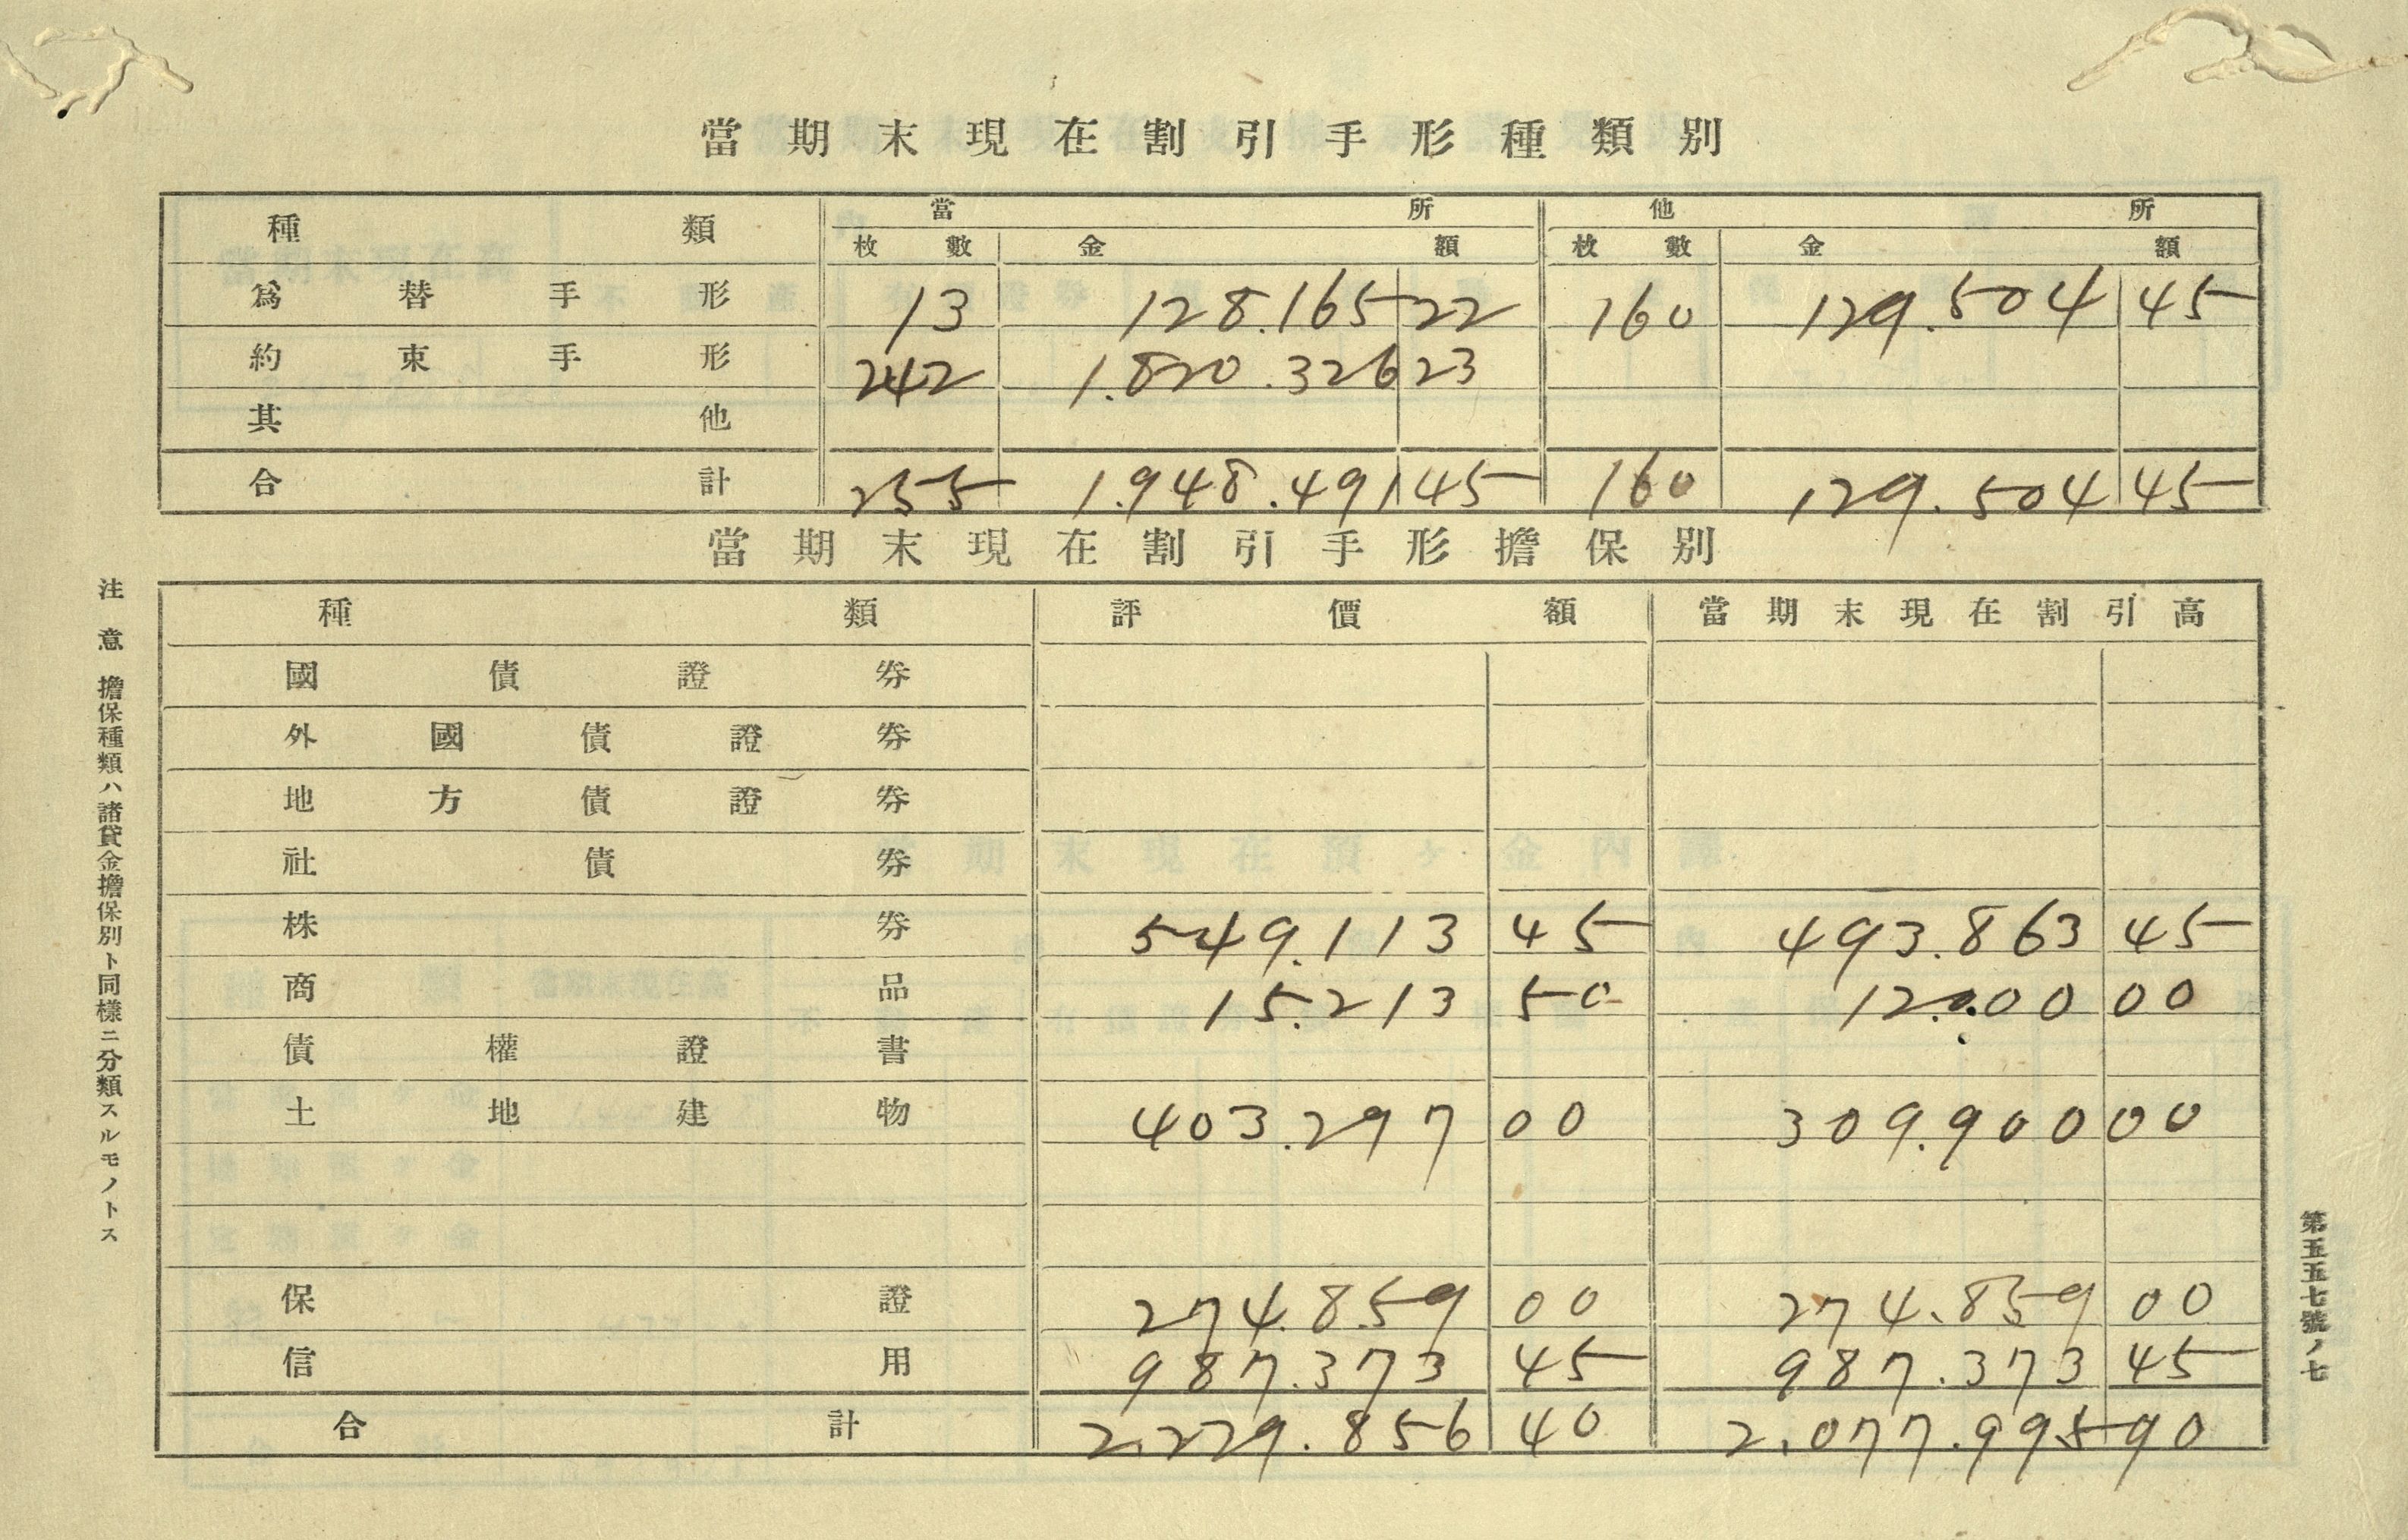 當期末現在割引手形種類別
種類 當所 他所
枚數 金額 枚數 金額
爲替手形 13 128.165 22 160 129.504 45
約束手形 242 1.820.326 23
其他
合計 255 1.948.491 45 160 129.504 45
當期末現在割引手形擔保別
種類 評價額 當期末現在割引高
國債證券
外國債證券
地方債證券
社債券
株券 549.113 45 493.863 45
商品 15.213 50 12.000 00
債權證書
土地建物 403.297 00 309.900 00
保證 274.859 00 274.859 00
信用 987.373 45 987.373 45
合計 2.229.856 40 2.077.995 90
注意 擔保種類ハ諸貸金擔保別ト同樣ニ分類スルモノトス
第五五七號ノ七